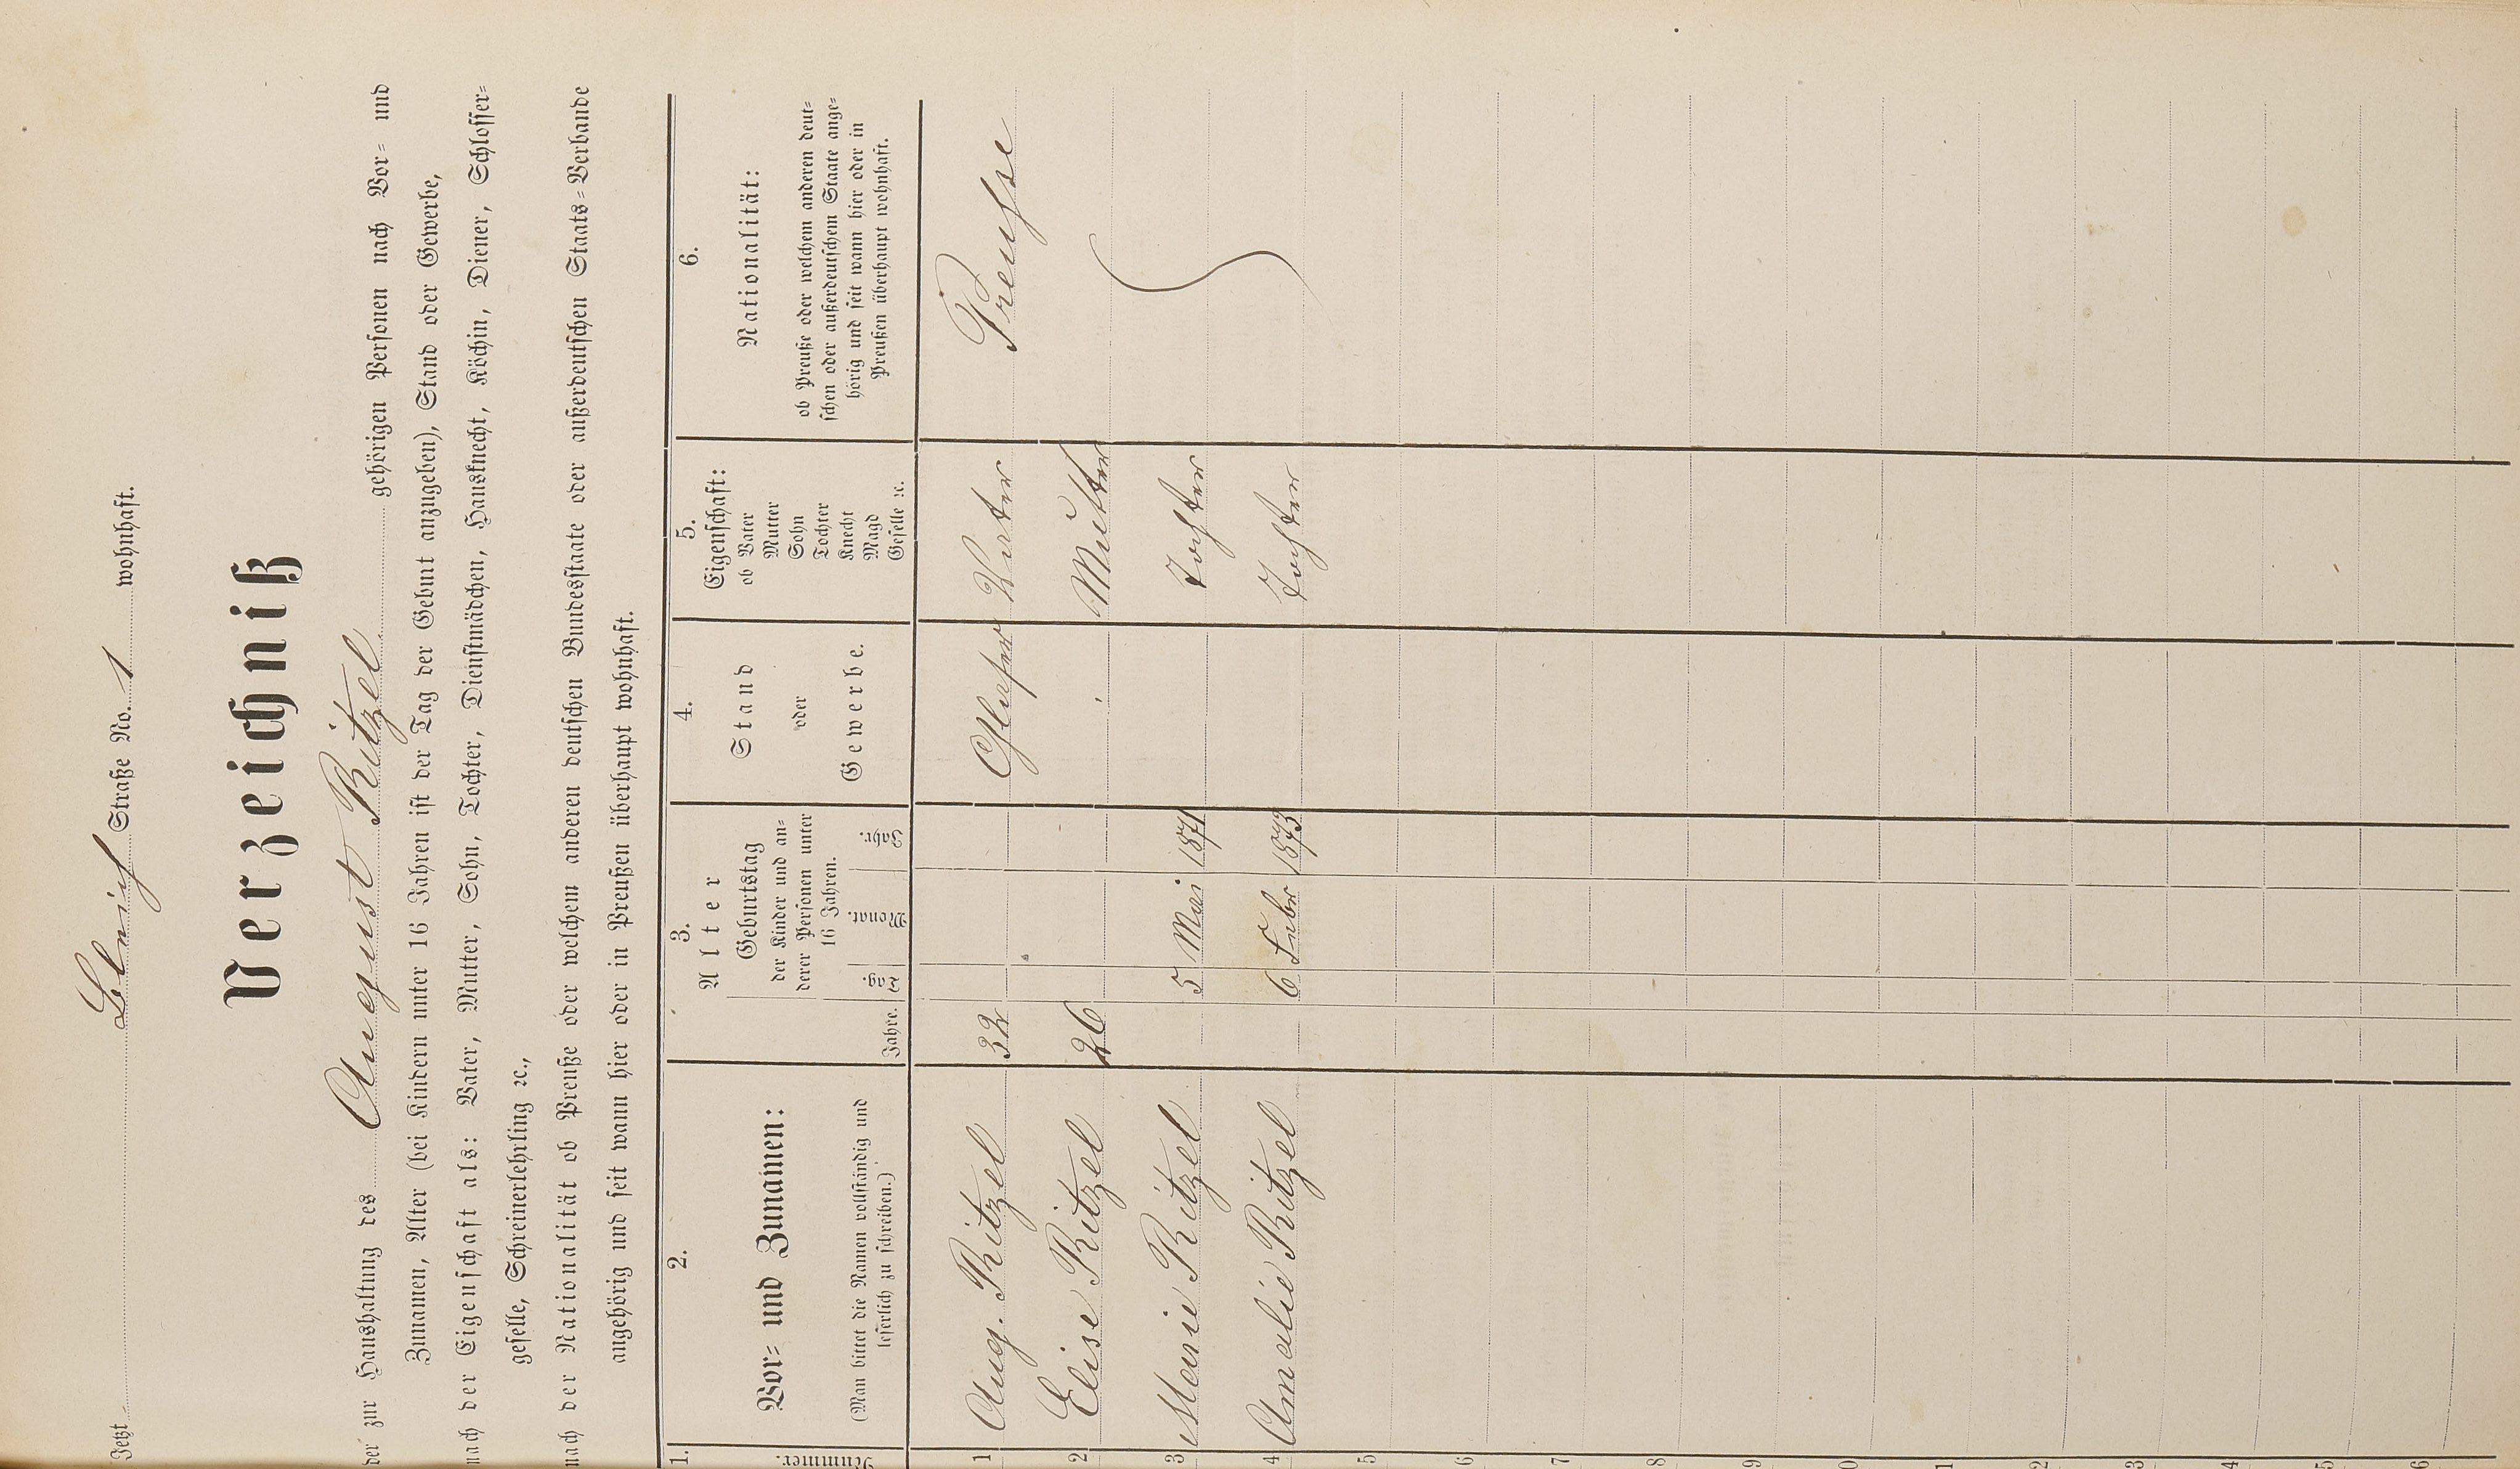 Jetzt Bleich Straße No. 1 wohnhaft.
Verzeichniß
der zur Haushaltung des August Ritzel gehörigen Personen nach Vor- und
Zunamen, Alter (bei Kindern unter 16 Jahren ist der Tag der Geburt anzugeben), Stand oder Gewerbe,
nach der Eigenschaft als: Vater, Mutter, Sohn, Tochter, Dienstmädchen, Hausknecht, Köchin, Diener, Schlosser-
geselle, Schreinerlehrling ꝛc.,
nach der Nationalität ob Preuße oder welchem anderen deutschen Bundesstaate oder außerdeutschen Staats-Verbande
angehörig und seit wann hier oder in Preußen überhaupt wohnhaft.
1. 2. 3. 4. 5. 6.
Nummer.
Vor- und Zunamen:
(Man bittet die Namen vollständig und
leserlich zu schreiben.)
Alter
Jahre.
Geburtstag
der Kinder und an-
derer Personen unter
16 Jahren.
Tag. Monat. Jahr.
Stand
oder
Gewerbe.
Eigenschaft:
ob Vater
Mutter
Sohn
Tochter
Knecht
Magd
Geselle ꝛc.
Nationalität:
ob Preuße oder welchem anderen deut-
schen oder außerdeutschen Staate ange-
hörig und seit wann hier oder in
Preußen überhaupt wohnhaft.
1 Aug. Ritzel 32 Glaser Vater Preusse
2 Elise Ritzel 26 Mutter
3 Marie Ritzel 5 Mai 1871 Tochter
4 Amalie Ritzel 6 Febr 1873 Tochter
5
6
7
8
9
0
1
2
3
4
5
6